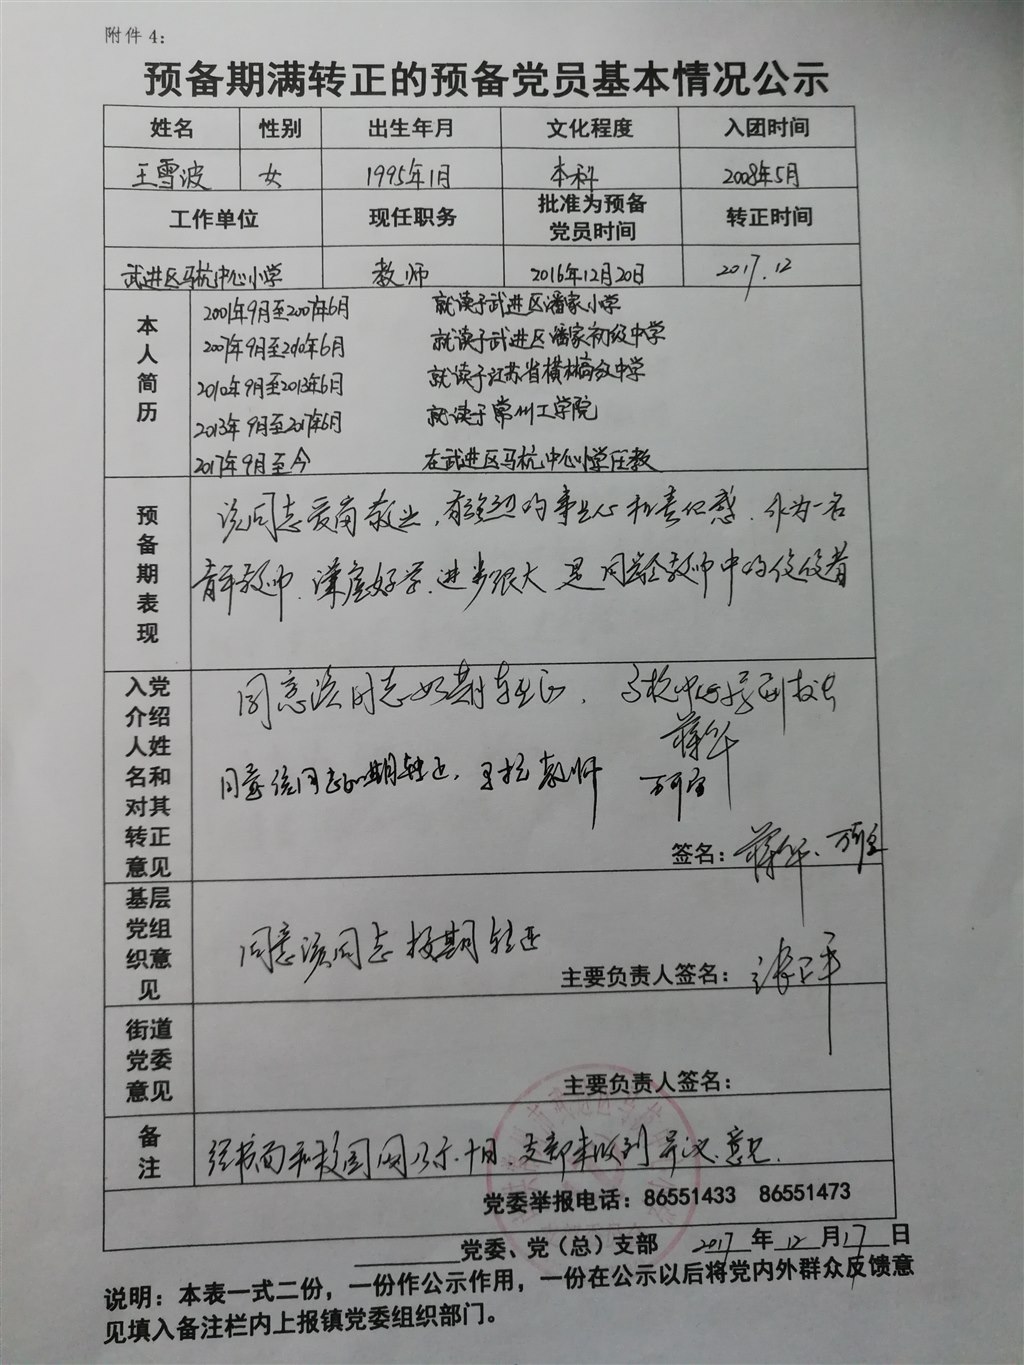 附件 4：
预备期满转正的预备党员基本情况公示
姓名 性别 出生年月 文化程度 入团时间
王雪波 女 1995年1月 本科 2008年5月
工作单位 现任职务 批准为预备党员时间 转正时间
武进区马杭中心小学 教师 2016年12月20日 2017.12
本人简历
2001年9月至2007年6月 就读于武进区潘家小学
2007年9月至2010年6月 就读于武进区潘家初级中学
2010年9月至2013年6月 就读于江苏省横林高级中学
2013年9月至2017年6月 就读于常州工学院
2017年9月至今 在武进区马杭中心小学任教
预备期表现
该同志爱岗敬业，有强烈的事业心和责任感．作为一名
青年教师．谦虚好学．进步很大 是 同龄教师中的佼佼者
入党介绍人姓名和对其转正意见
同意该同志如期转正．
蒋华
同意该同志如期转正．马杭教师
签名：蒋华、
基层党组织意见
同意该同志按期转正
主要负责人签名：
街道党委意见
主要负责人签名：
备注
经书面和校园网公示十日．支部未收到异议意见．
党委举报电话：86551433 86551473
党委、党（总）支部 2017 年 12 月 17 日
说明：本表一式二份，一份作公示作用，一份在公示以后将党内外群众反馈意
见填入备注栏内上报镇党委组织部门。